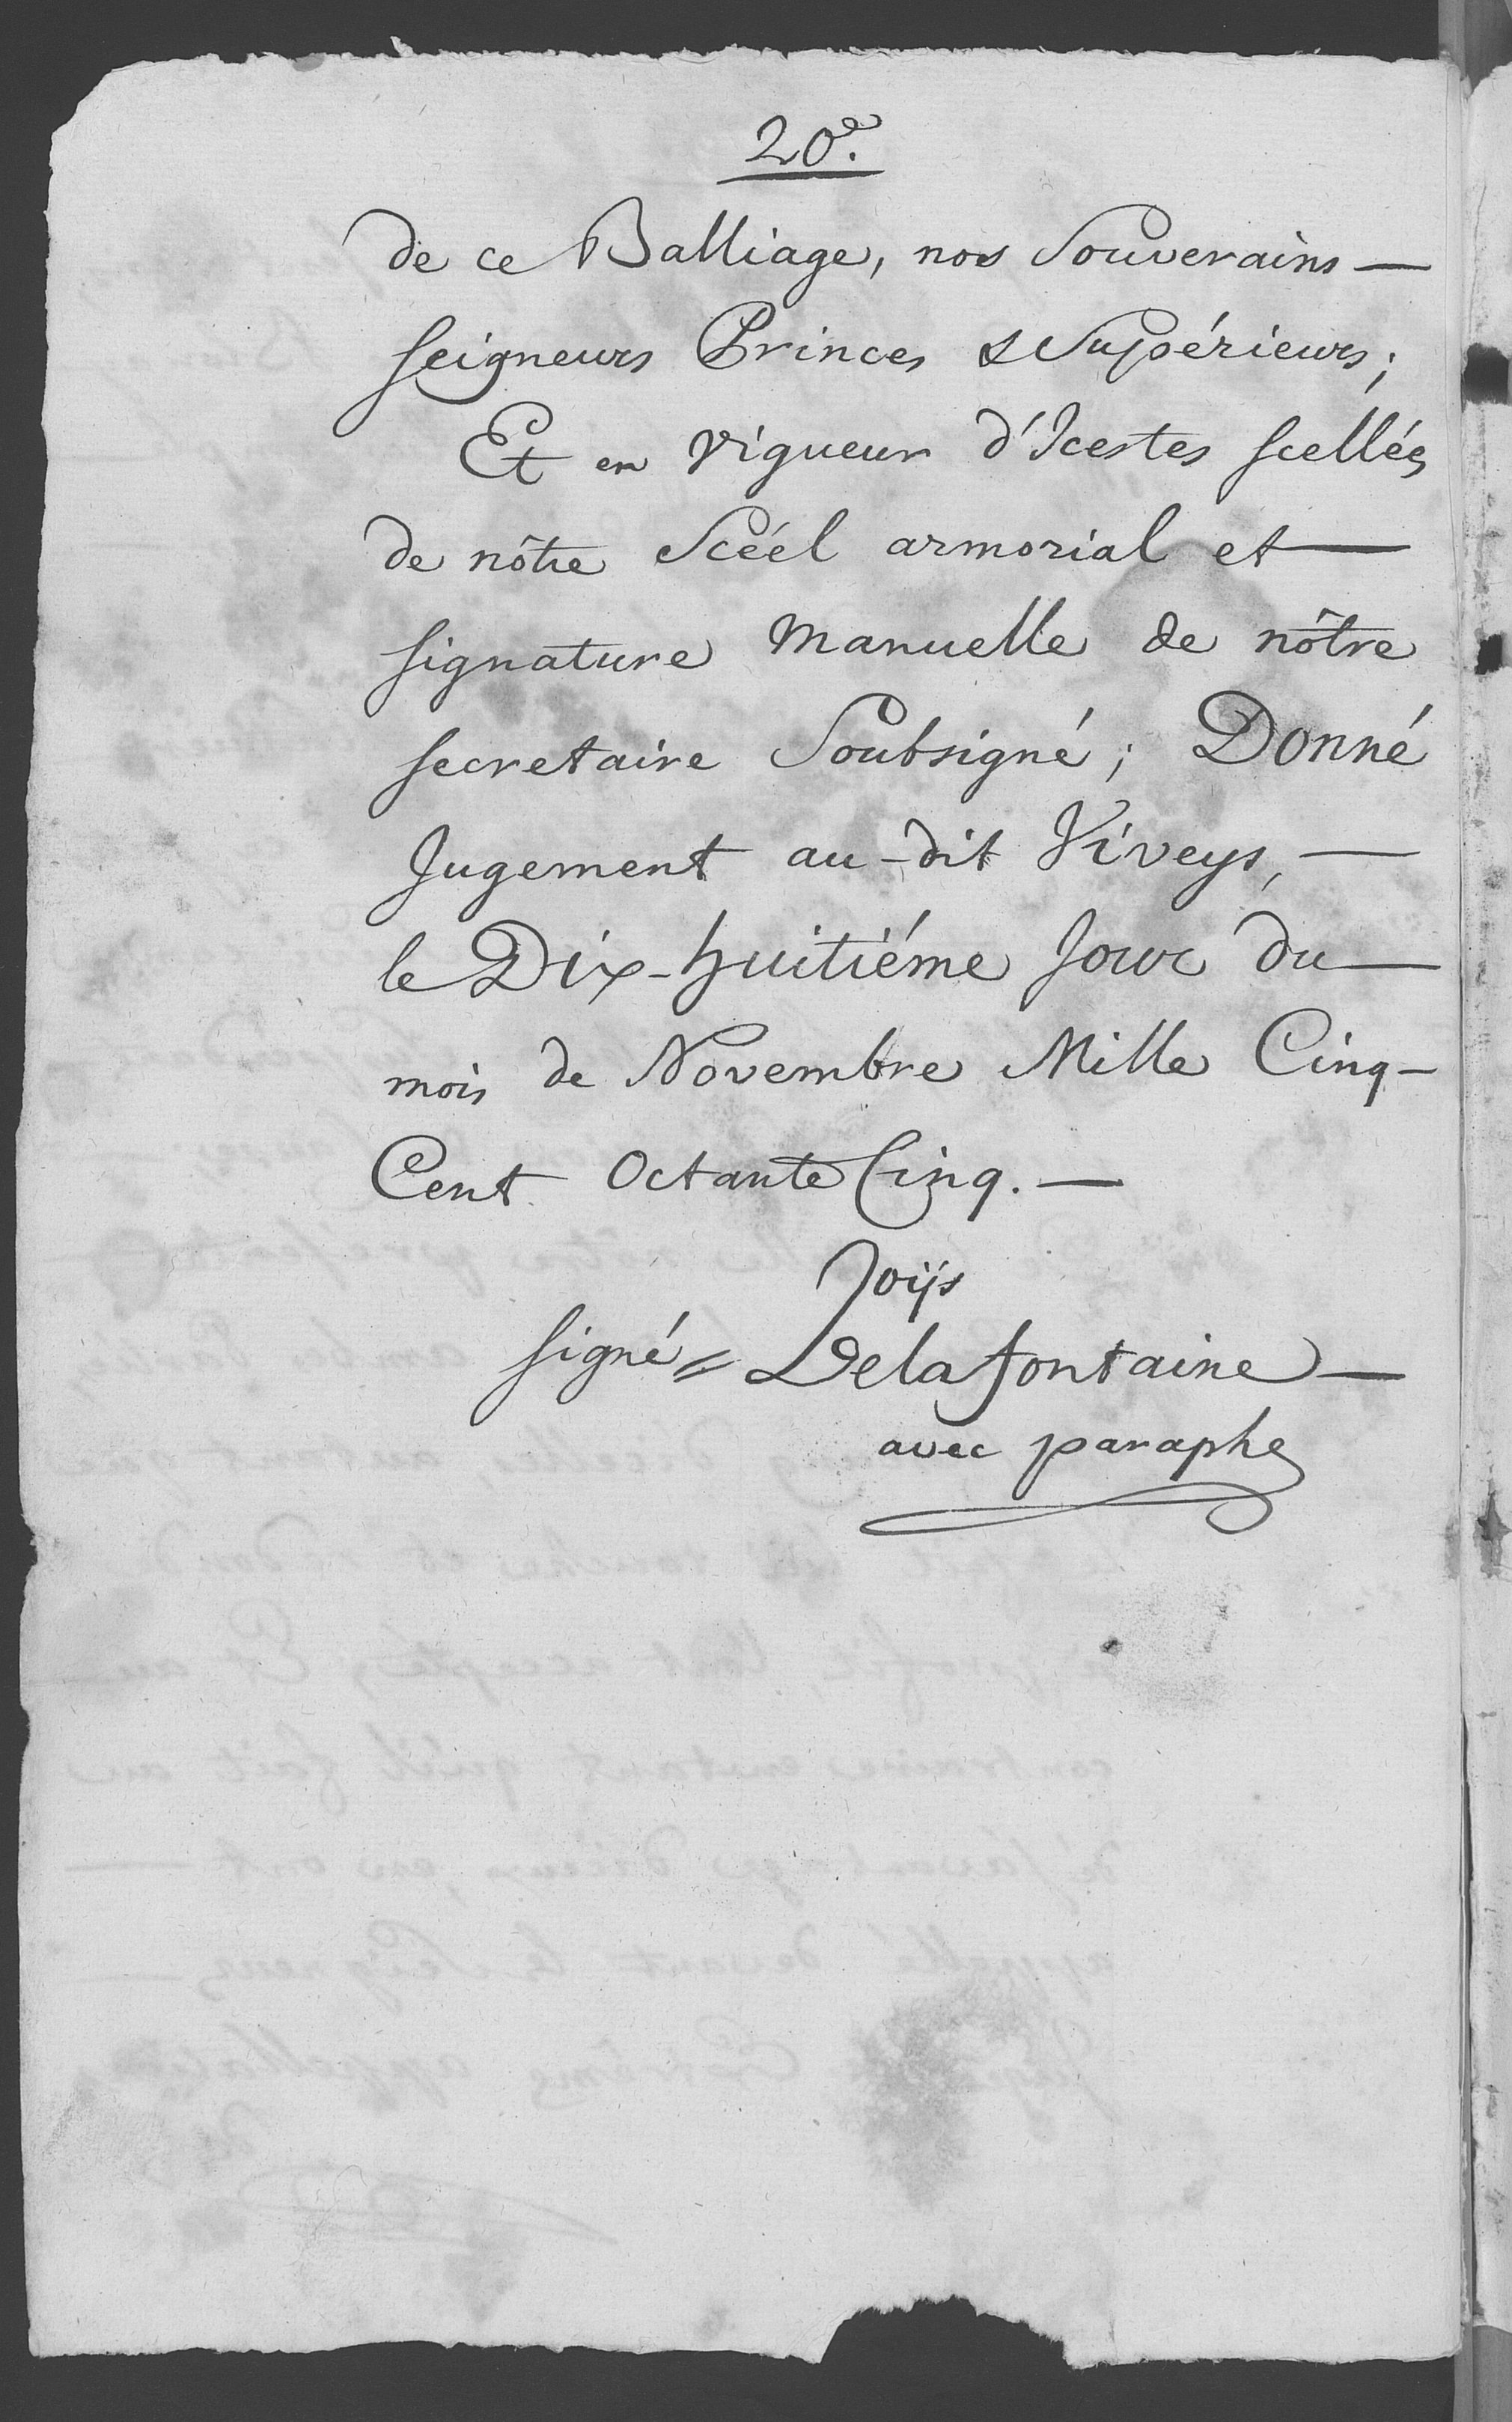 20e.
de ce Balliage, nos Souverains —
seigneurs Princes & Supérieurs;
Et en vigueur d'Icestes scellées
de nôtre Scéél armorial et —
signature Manuelle de nôtre
secretaire Soubsigné; Donné
Jugement au-dit Viveys, —
le Dix-huitiéme Jour du —
mois de Novembre Mille Cinq-
Cent Octante Cinq. —
Joijs
signé = Delafontaine —
avec paraphe